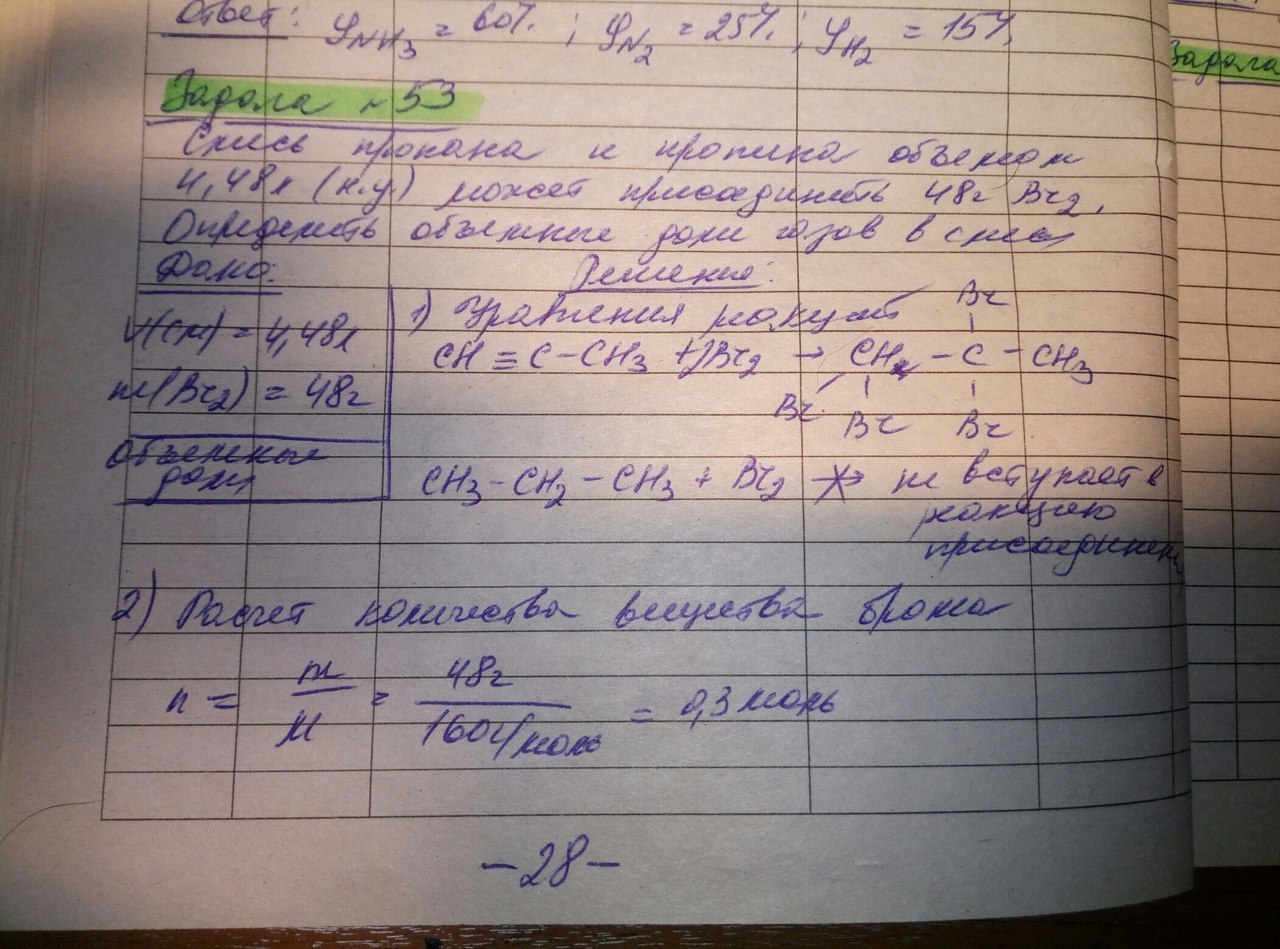 Ответ: φNH3 = 60%; φN2 = 25%; φH2 = 15%
Задача
Задача ~53
Смесь пропана и пропина объемом
4,48л (н.у.) может присоединить 48г Br2.
Определить объемные доли газов в смеси
Дано:
Решение:
V(см) = 4,48л
m(Br2) = 48г
объемные
доли
1) Уравнения реакций
Br
CH ≡ C – CH3 + 2Br2 → CH – C – CH3
Br Br Br
CH3 – CH2 – CH3 + Br2 → не вступает в
реакцию
присоединения
2) Расчет количества вещества брома
n = m/M = 48г/160г/моль = 0,3 моль
–28–